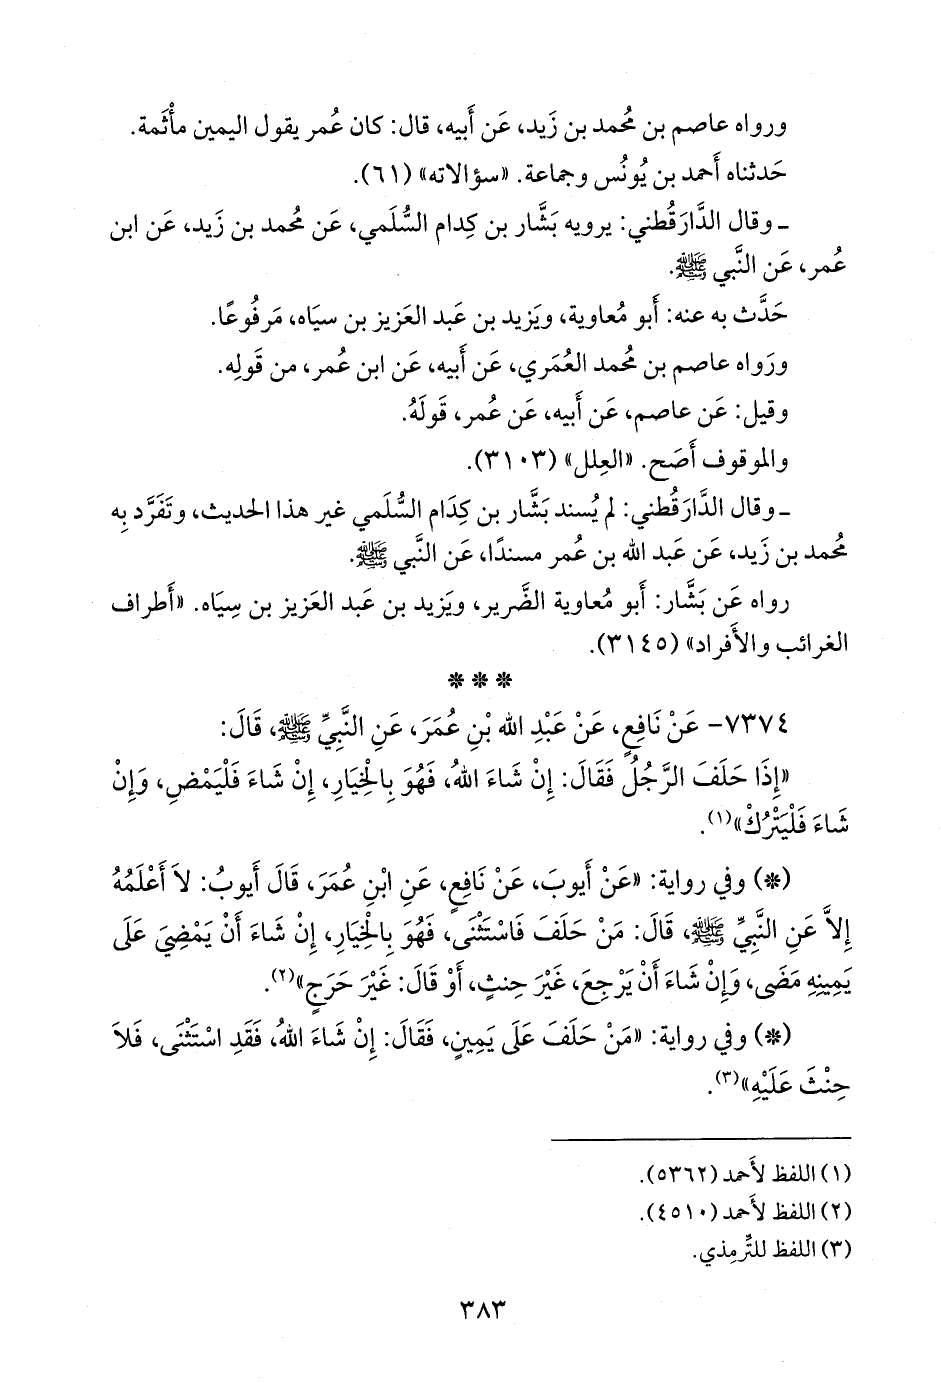 ورواه عاصم بن مُحمد بن زَيد، عَن أَبيه، قال: كان عُمر يقول اليمين مأْثَمة.
حَدثناه أَحمد بن يُونُس وجماعة. «سؤالاته» (٦١).
ـ وقال الدَّارَقُطني: يرويه بَشَّار بن كِدام السُّلَمي، عَن مُحمد بن زَيد، عَن ابن
عُمر، عَن النَّبي ﷺ.
حَدَّث به عنه: أَبو مُعاوية، ويَزيد بن عَبد العَزيز بن سياه، مَرفُوعًا.
ورَواه عاصم بن مُحمد العُمَري، عَن أَبيه، عَن ابن عُمر، من قَولِه.
وقيل: عَن عاصم، عَن أَبيه، عَن عُمر، قَولَهُ.
والموقوف أَصَح. «العِلل» (٣١٠٣).
ـ وقال الدَّارَقُطني: لم يُسند بَشَّار بن كِدَام السُّلَمي غير هذا الحديث، وتَفَرَّد بِه
مُحمد بن زَيد، عَن عَبد الله بن عُمر مسندًا، عَن النَّبي ﷺ.
رواه عَن بَشَّار: أَبو مُعاوية الضَّرير، ويَزيد بن عَبد العَزيز بن سِيَاه. «أَطراف
الغرائب والأَفراد» (٣١٤٥).
* * *
٧٣٧٤- عَنْ نَافِعٍ، عَنْ عَبْدِ الله بْنِ عُمَرَ، عَنِ النَّبِيِّ ﷺ، قَالَ:
«إِذَا حَلَفَ الرَّجُلُ فَقَالَ: إِنْ شَاءَ اللهُ، فَهُوَ بِالْخِيَارِ، إِنْ شَاءَ فَلْيَمْضِ، وَإِنْ
شَاءَ فَلْيَتْرُكْ»(١).
(*) وفي رواية: «عَنْ أَيوبَ، عَنْ نَافِعٍ، عَنِ ابْنِ عُمَرَ، قَالَ أَيوبُ: لاَ أَعْلَمُهُ
إِلاَّ عَنِ النَّبِيِّ ﷺ، قَالَ: مَنْ حَلَفَ فَاسْتَثْنَى، فَهُوَ بِالْخِيَارِ، إِنْ شَاءَ أَنْ يَمْضِيَ عَلَى
يَمِينِهِ مَضَى، وَإِنْ شَاءَ أَنْ يَرْجِعَ، غَيْرَ حِنثٍ، أَوْ قَالَ: غَيْرَ حَرَجٍ»(٢).
(*) وفي رواية: «مَنْ حَلَفَ عَلَى يَمِينٍ، فَقَالَ: إِنْ شَاءَ اللهُ، فَقَدِ اسْتَثْنَى، فَلاَ
حِنْثَ عَلَيْهِ»(٣).
(١) اللفظ لأَحمد (٥٣٦٢).
(٢) اللفظ لأَحمد (٤٥١٠).
(٣) اللفظ للتِّرمِذي.
٣٨٣